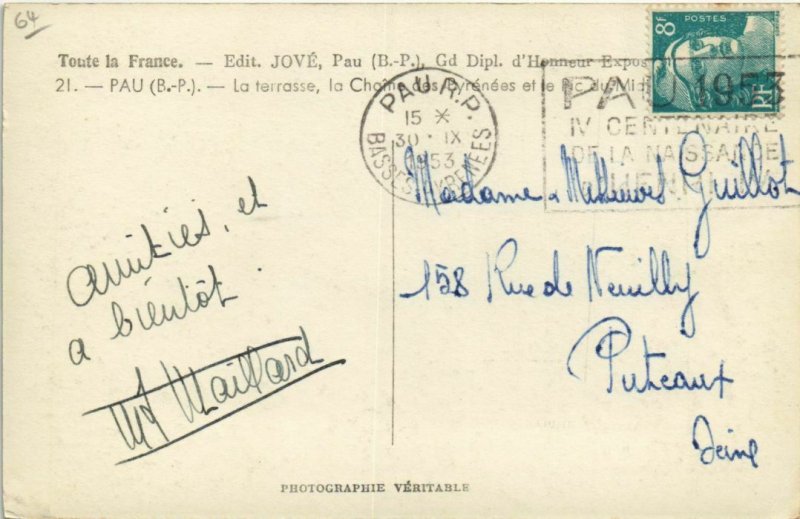 64
8F
POSTES
RF
Toute la France. — Edit. JOVÉ, Pau (B.-P.), Gd Dipl. d'Honneur Expos
21. — PAU (B.-P.). — La terrasse, la Chaîne des Pyrénées et le Pic du Midi
PAU R.P.
15 *
30 - IX
1953
BASSES PYRENEES
PAU 1953
IV CENTENAIRE
DE LA NAISSANCE
HENRI
amitiés, et
a bientôt.
Maillard
Madame Guillot
158 Rue de Neuilly
Puteaux
Seine
PHOTOGRAPHIE VÉRITABLE